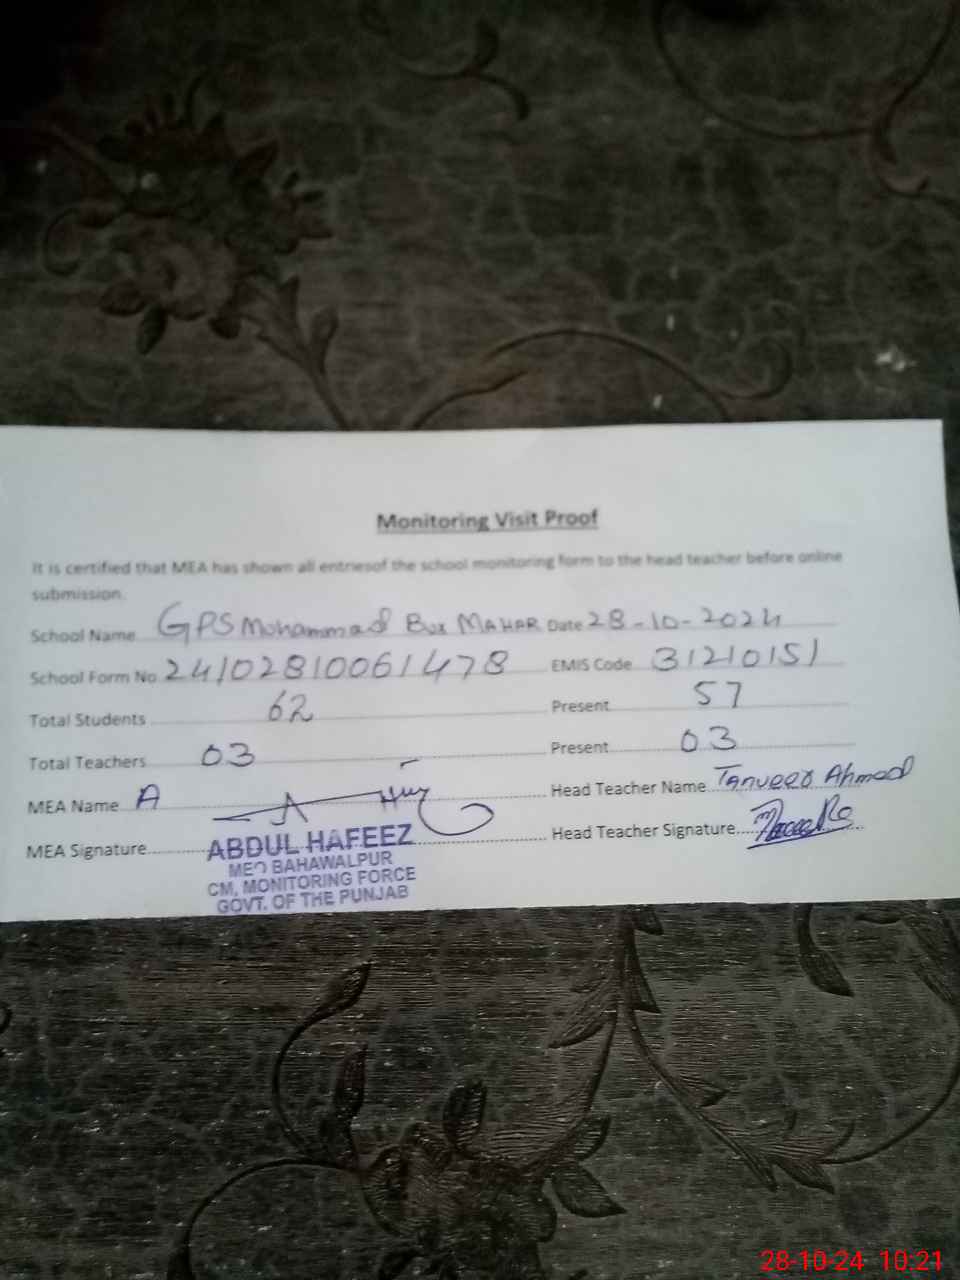 Monitoring Visit Proof
It is certified that MEA has shown all entriesof the school monitoring form to the head teacher before online
submission.
School Name GPS Mohammad Bux MAHAR Date 28-10-2024
School Form No 24102810061478 EMIS Code 31210151
Total Students 62 Present 57
Total Teachers 03 Present 03
MEA Name A Head Teacher Name Tanveer Ahmad
MEA Signature Head Teacher Signature
ABDUL HAFEEZ
MEO BAHAWALPUR
CM, MONITORING FORCE
GOVT. OF THE PUNJAB
28-10-24 10:21